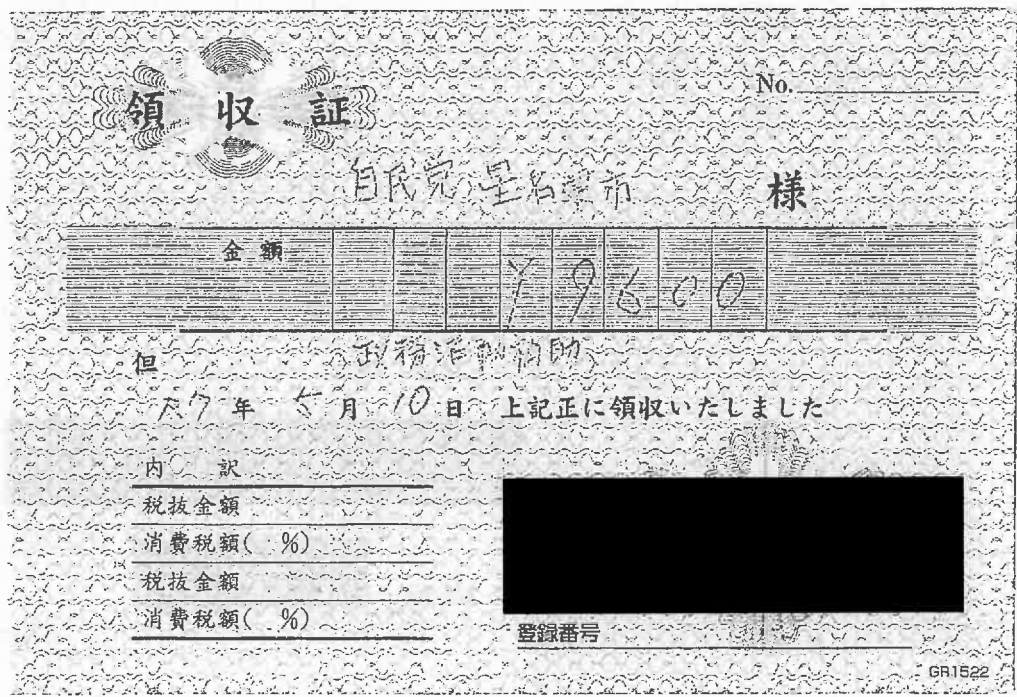 領収証
No.
自民党 星名建市 様
金額 ¥9600
但 政務活動補助
R7年 5月 10日 上記正に領収いたしました
内訳
税抜金額
消費税額( %)
税抜金額
消費税額( %)
登録番号
GR1522